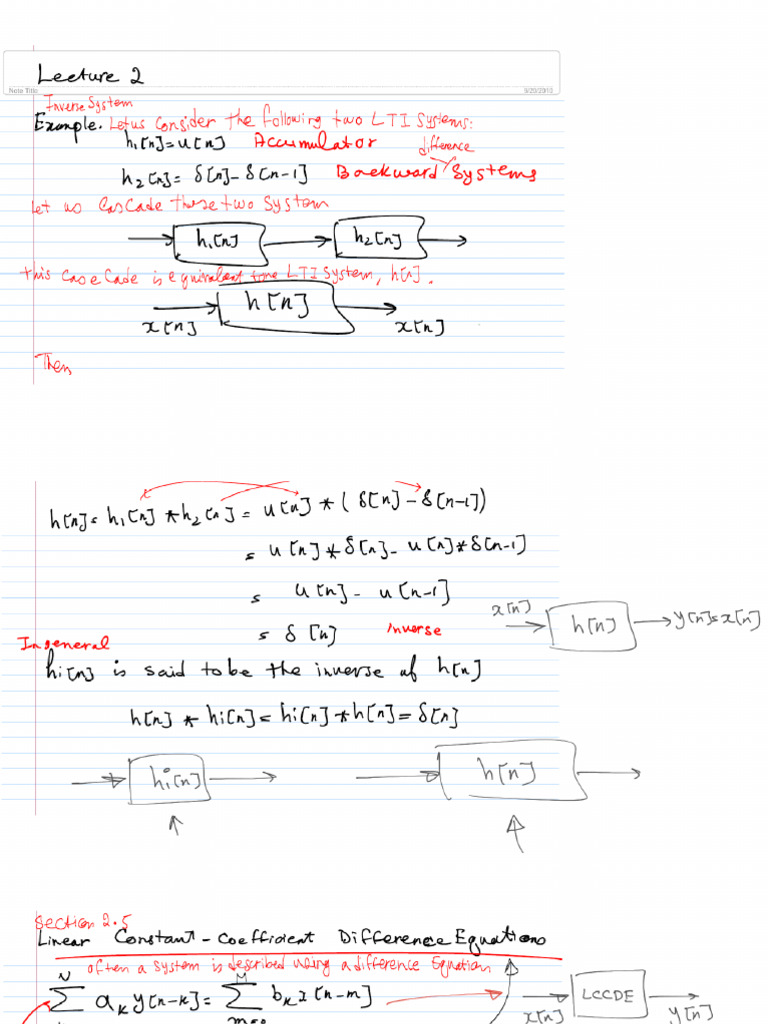 Lecture 2
Note Title
9/20/2010
Inverse System
Example. Let us Consider the following two LTI Systems:
h₁[n]=u[n] Accumulator
difference
h₂[n]= δ[n]-δ[n-1] Backward Systems
Let us Cascade these two System
h₁[n] h₂[n]
this CaseCade is equivalent to one LTI System, h[n].
h[n]
x[n] x[n]
Then
h[n]= h₁[n] * h₂[n] = u[n] * (δ[n]-δ[n-1])
= u[n]*δ[n]- u[n]*δ[n-1]
= u[n]- u[n-1]
= δ[n] inverse
x[n] h[n] y[n]=x[n]
In general
hi[n] is said to be the inverse of h[n]
h[n] * hi[n]= hi[n]*h[n]= δ[n]
hi[n] h[n]
Section 2.5
Linear Constant-Coefficient Difference Equations
often a system is described using a difference Equation
N M
∑ aₖ y[n-k]= ∑ bₖ x[n-m]
LCCDE
x[n] y[n]